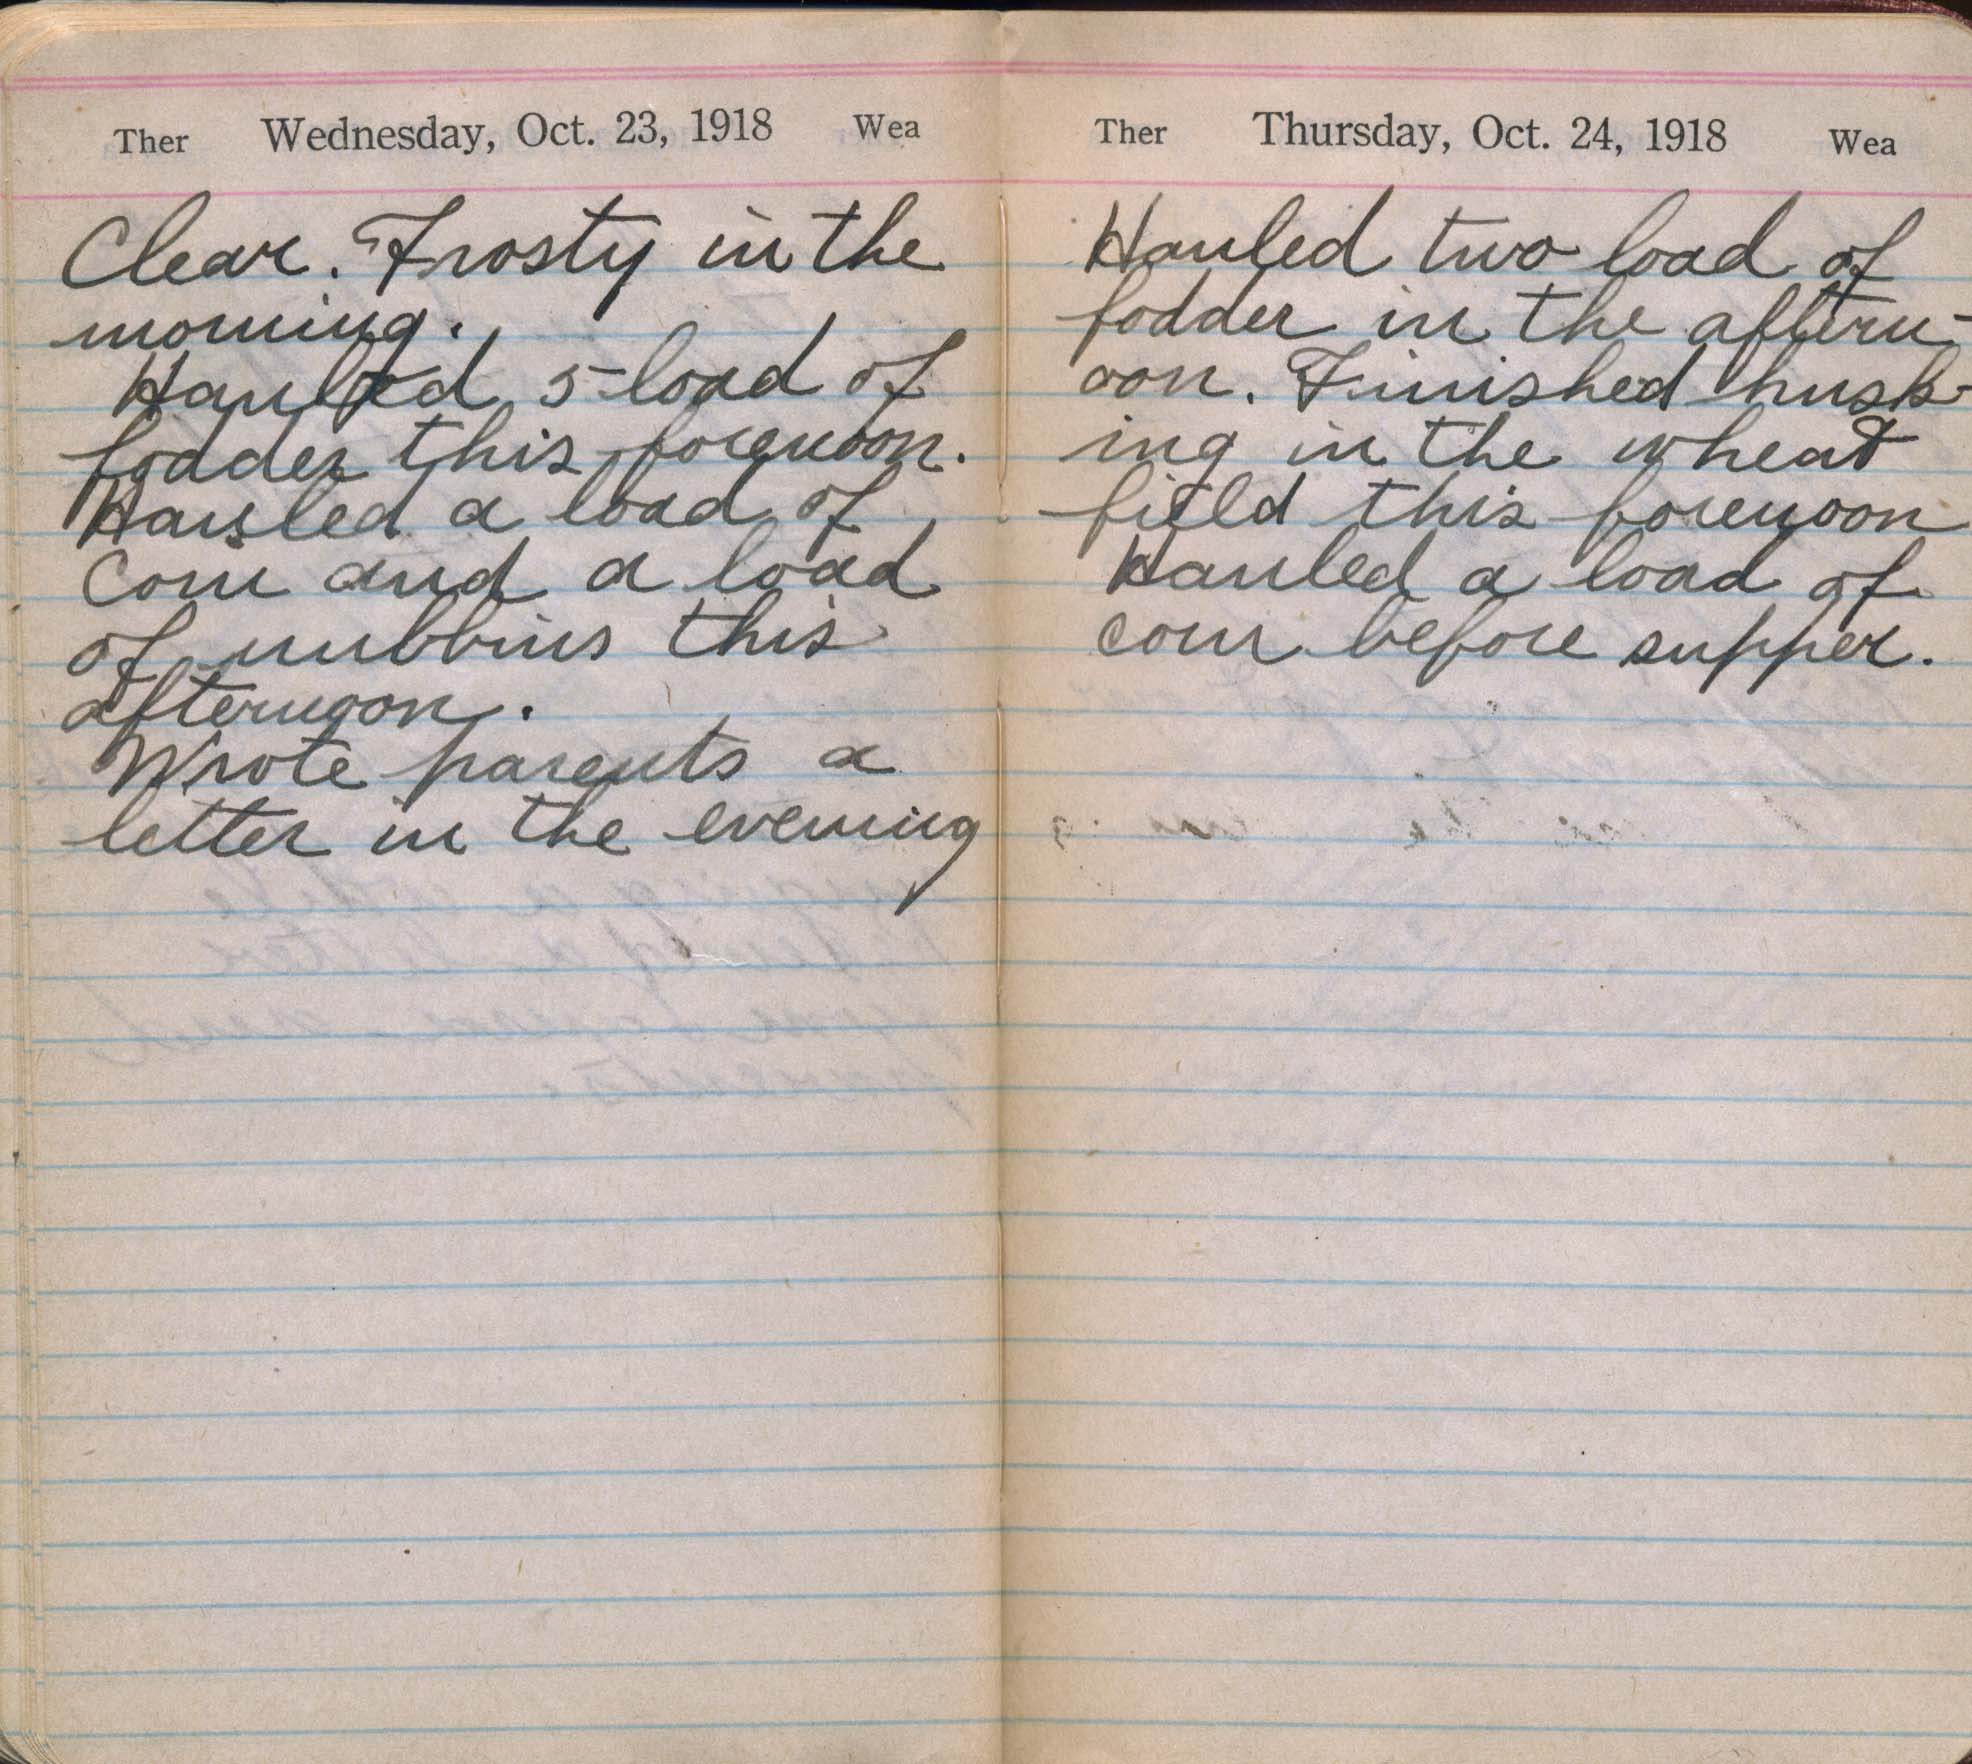 Ther Wednesday, Oct. 23, 1918 Wea
Clear. Frosty in the
morning.
Hauled 5 load of
fodder this forenoon.
Hauled a load of
corn and a load
of nubbins this
afternoon.
Wrote parents a
letter in the evening
Ther Thursday, Oct. 24, 1918 Wea
Hauled two load of
fodder in the aftern-
oon. Finished husk-
ing in the wheat
field this forenoon
Hauled a load of
corn before supper.